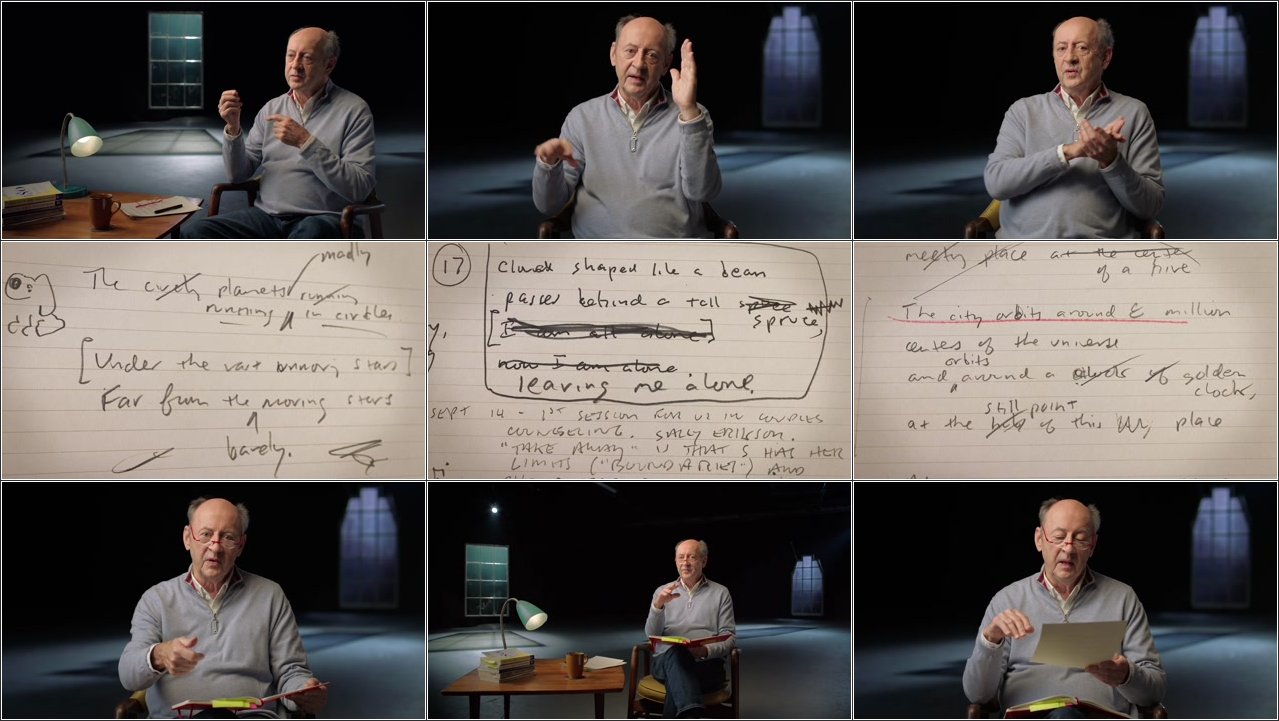 madly
The planets running
running in circles.
[Under the vast runory stars]
Far from the moving stars
barely.
17
Cloud shaped like a bean
passes behind a tall spruce
spruce,
[I am all alone]
now I am alone
leaving me alone.
SEPT 14 - 1ST SESSION FOR US IN COUPLES
COUNSELING. SALLY ERIKSON.
"TAKE AWAY" IS THAT S HAS HER
LIMITS ("BOUNDARIES") AND
meeting place at the center
of a hive
The city orbits around a million
centers of the universe
orbits
and around a of golden
clocks,
still point
at the of this place